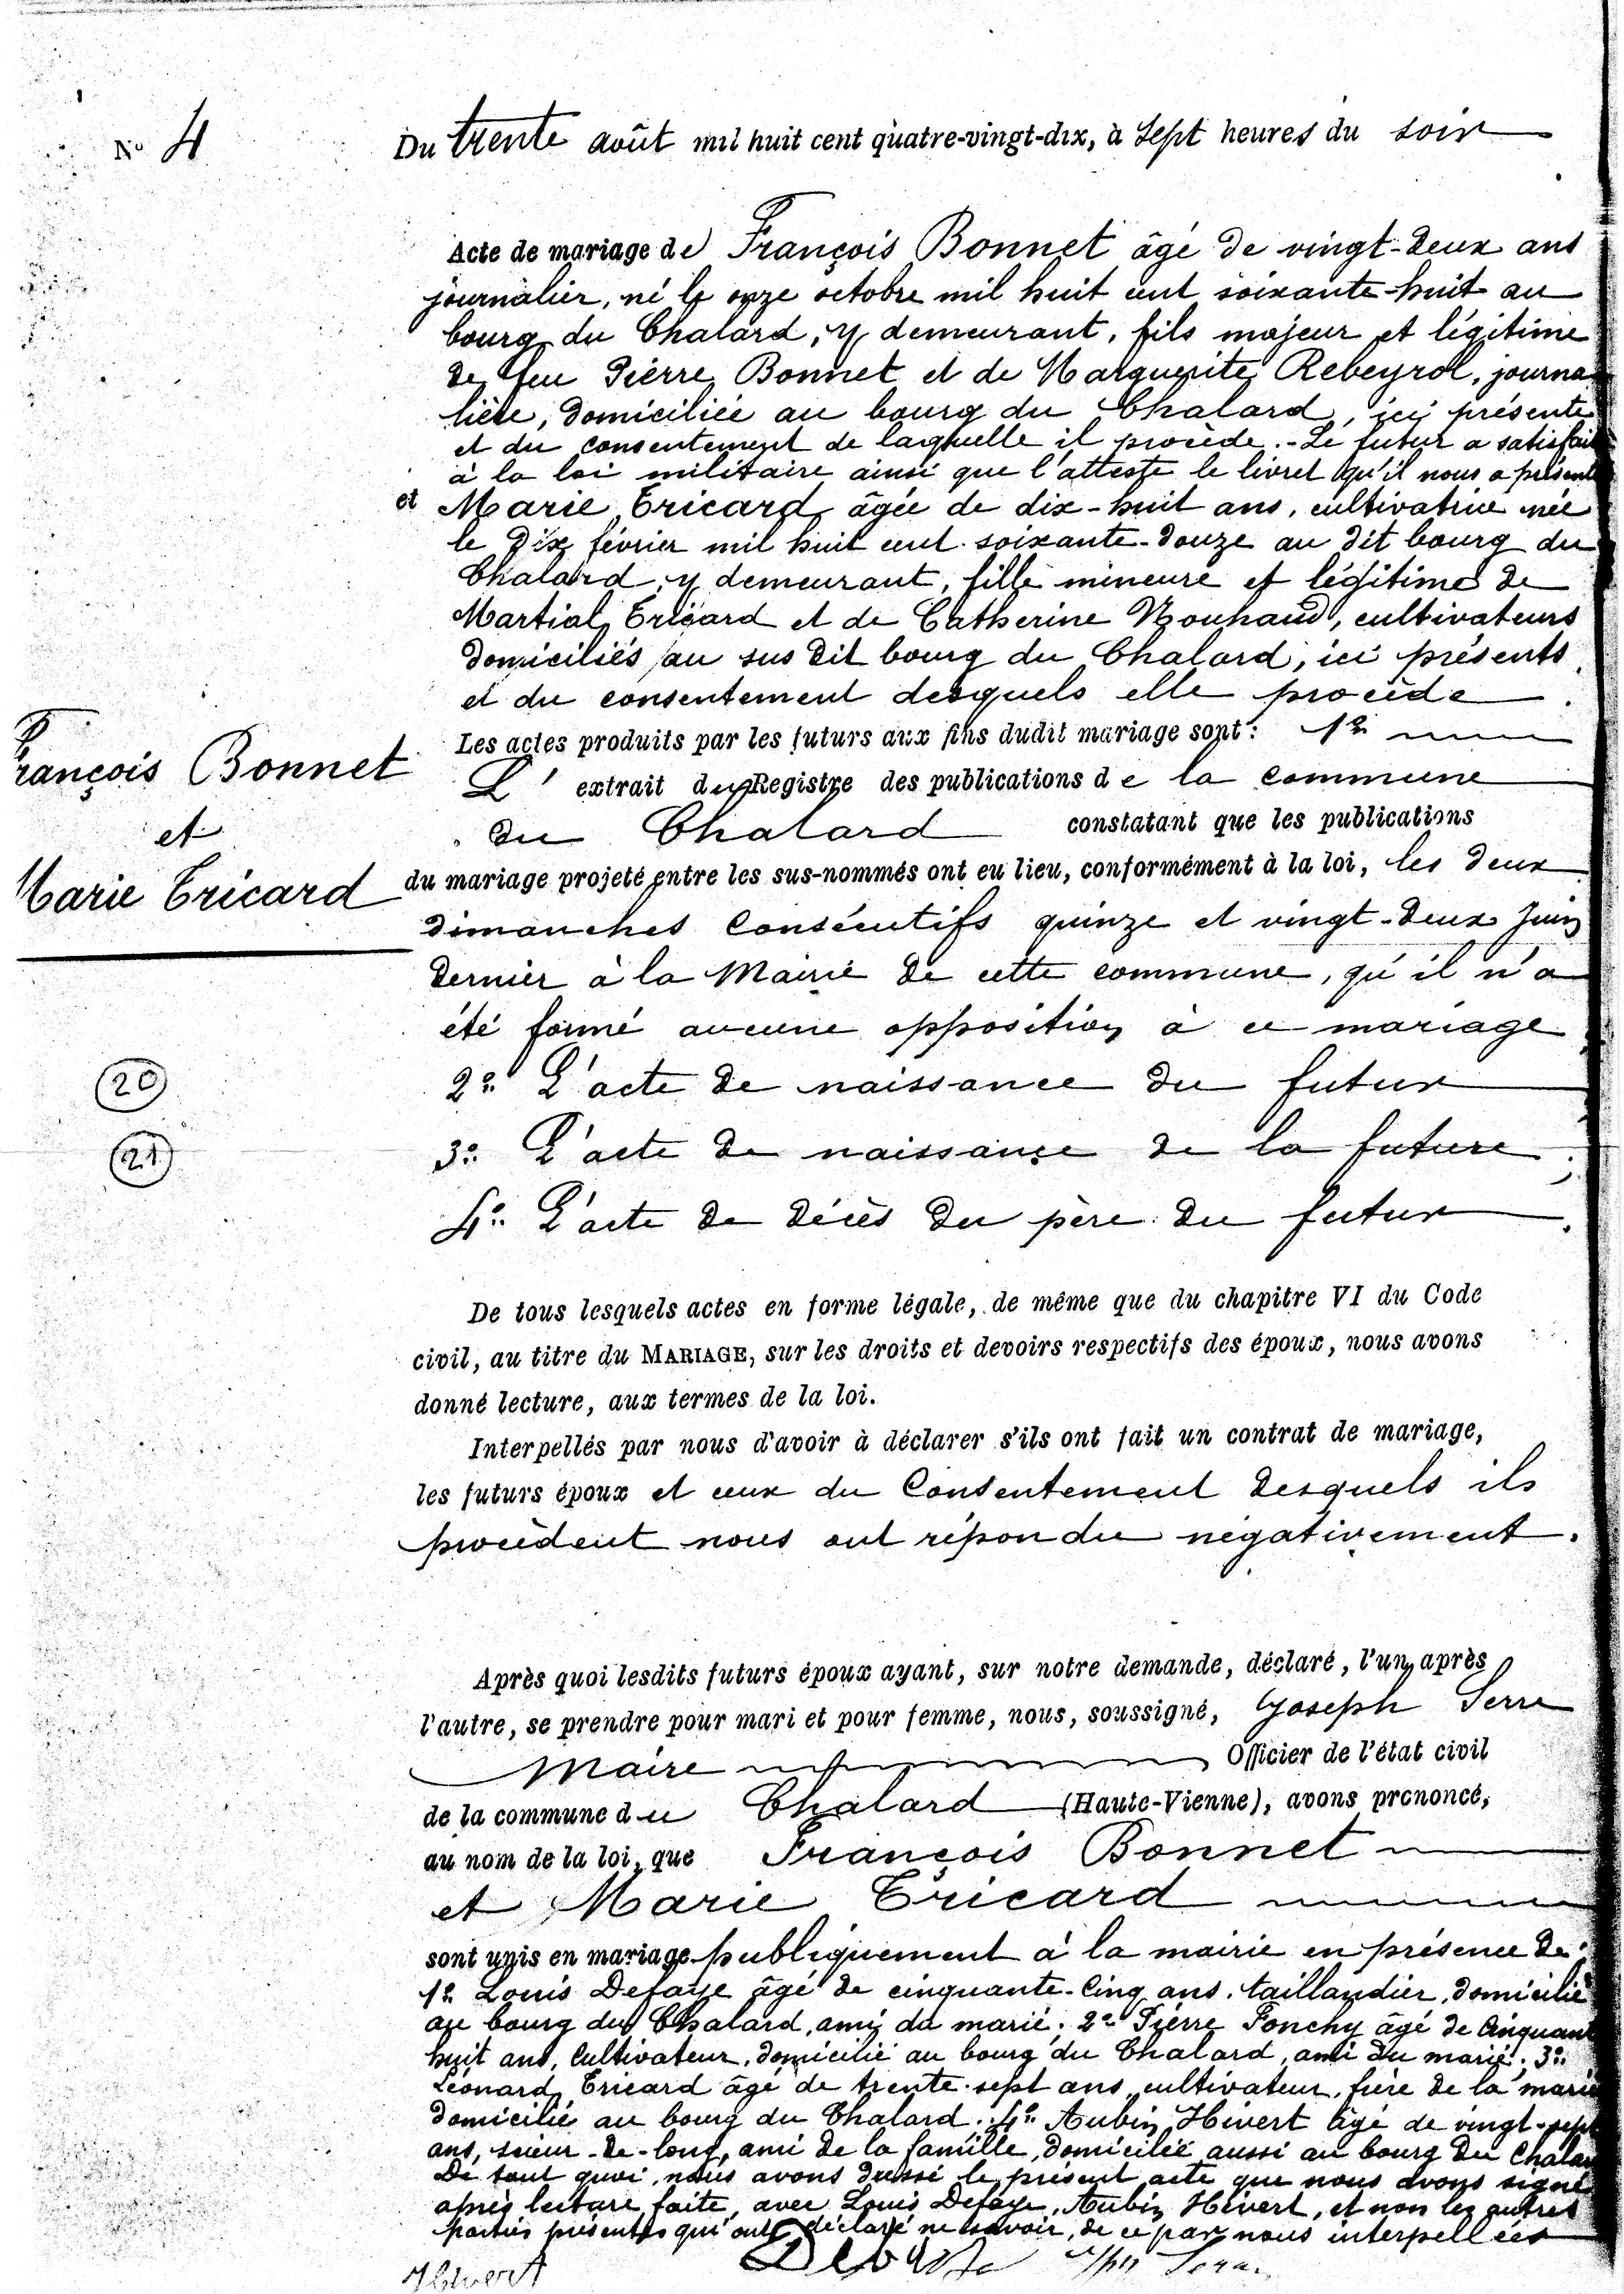 N° 4
Du trente août mil huit cent quatre-vingt-dix, à sept heures du soir
Acte de mariage de François Bonnet âgé de vingt-deux ans
journalier, né le onze octobre mil huit cent soixante-huit au
bourg du Chalard, y demeurant, fils majeur et légitime
de feu Pierre Bonnet et de Marguerite Rebeyrol, journa
lière, domiciliée au bourg du Chalard, ici présente
et du consentement de laquelle il procède. - Le futur a satisfait
à la loi militaire ainsi que l'atteste le livret qu'il nous a présenté
et Marie Tricard âgée de dix-huit ans, cultivatrice née
le dix février mil huit cent soixante-douze au dit bourg du
Chalard, y demeurant, fille mineure et légitime de
Martial Tricard et de Catherine Nouhaud, cultivateurs
domiciliés au sus dit bourg du Chalard, ici présents
et du consentement desquels elle procède.
Les actes produits par les futurs aux fins dudit mariage sont: 1°
François Bonnet
et
Marie Tricard
L'extrait du Registre des publications de la commune
du Chalard constatant que les publications
du mariage projeté entre les sus-nommés ont eu lieu, conformément à la loi, les deux
dimanches consécutifs quinze et vingt-deux Juin
dernier à la Mairie de cette commune, qu'il n'a
été formé aucune opposition à ce mariage
20
2° L'acte de naissance du futur
21
3° L'acte de naissance de la future;
4° L'acte de décès du père du futur.
De tous lesquels actes en forme légale, de même que du chapitre VI du Code
civil, au titre du MARIAGE, sur les droits et devoirs respectifs des époux, nous avons
donné lecture, aux termes de la loi.
Interpellés par nous d'avoir à déclarer s'ils ont fait un contrat de mariage,
les futurs époux et ceux du Consentement desquels ils
procèdent nous ont répondu négativement.
Après quoi lesdits futurs époux ayant, sur notre demande, déclaré, l'un après
l'autre, se prendre pour mari et pour femme, nous, soussigné, Joseph Serre
Maire Officier de l'état civil
de la commune du Chalard (Haute-Vienne), avons prononcé,
au nom de la loi, que François Bonnet
et Marie Tricard
sont unis en mariage publiquement à la mairie en présence de:
1° Louis Defaye âgé de cinquante-cinq ans, taillandier, domicilié
au bourg du Chalard, ami du marié; 2° Pierre Ponchy âgé de cinquante
huit ans, cultivateur, domicilié au bourg du Chalard, ami du marié; 3°
Léonard Tricard âgé de trente-sept ans, cultivateur, frère de la mariée
domicilié au bourg du Chalard; 4° Aubin Hivert âgé de vingt-sept
ans, scieur-de-long, ami de la famille, domicilié aussi au bourg du Chalard
De tout quoi, nous avons dressé le présent acte que nous avons signé
après lecture faite, avec Louis Defaye, Aubin Hivert, et non les autres
parties présentes qui ont déclaré ne savoir, de ce par nous interpellées
Hivert